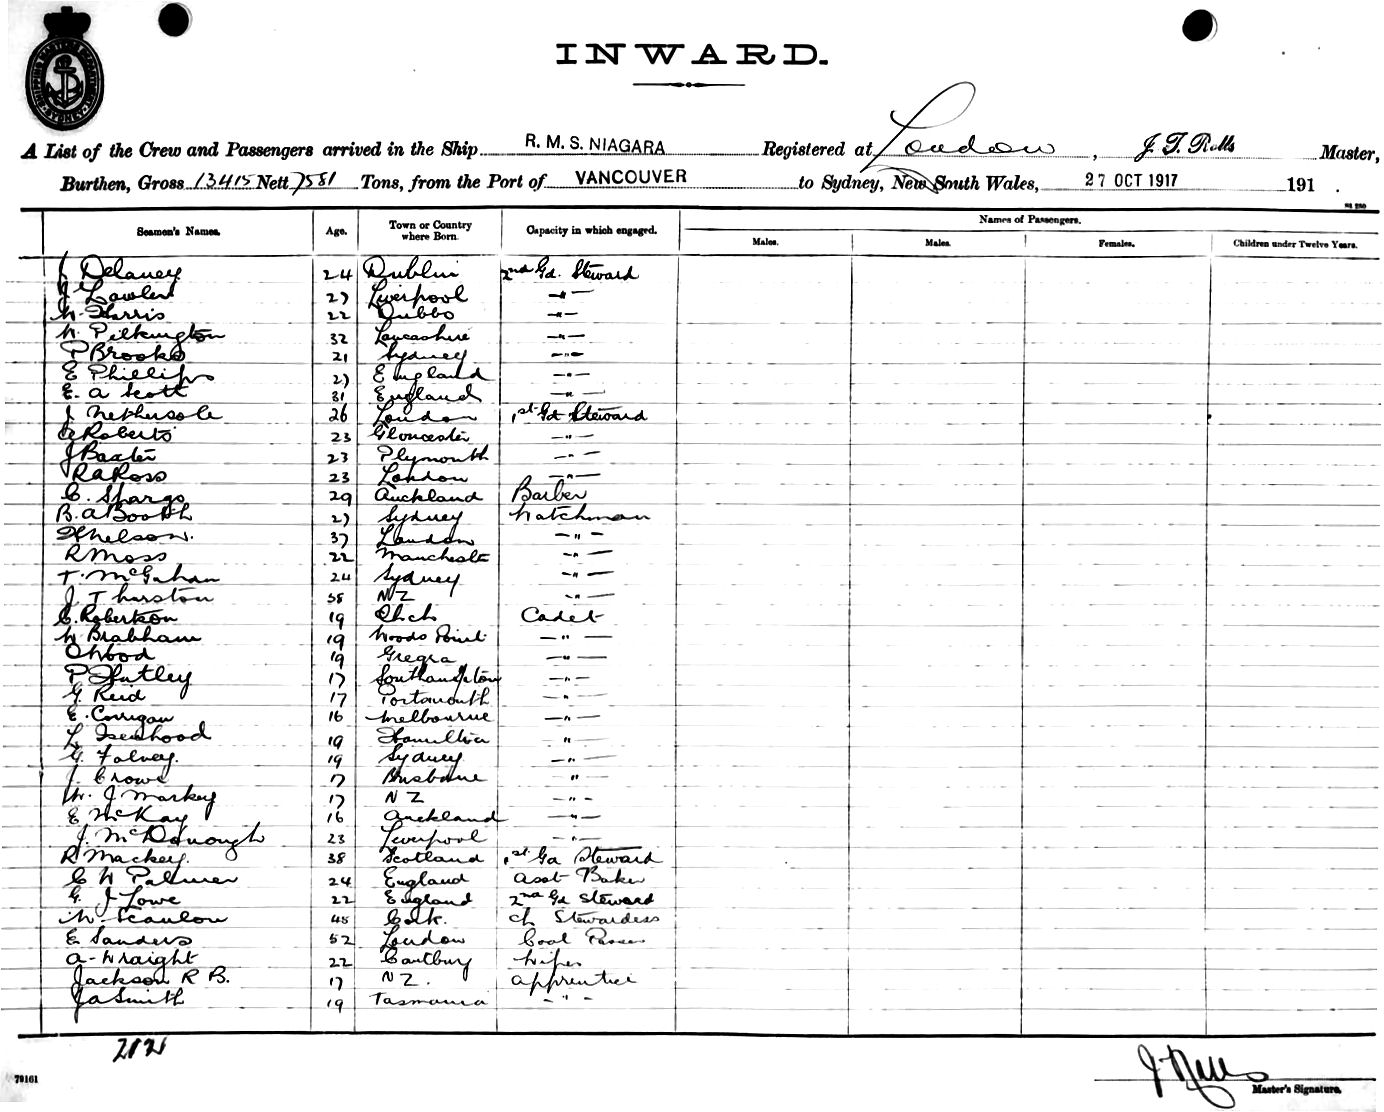 SHIPPING MASTERS DEPARTMENT SYDNEY
INWARD.
A List of the Crew and Passengers arrived in the Ship R. M. S. NIAGARA Registered at London, J. T. Rolls Master,
Burthen, Gross 13415 Nett 7581 Tons, from the Port of VANCOUVER to Sydney, New South Wales, 27 OCT 1917 191 .
Seamen's Names. Age. Town or Country where Born. Capacity in which engaged. Names of Passengers.
Males. Males. Females. Children under Twelve Years.
Delaney 24 Dublin 2nd Gd. Steward
J. Lawler 27 Liverpool —"—
W. Harris 22 Dubbo —"—
W. Pilkington 32 Lancashire —"—
P Brooks 21 Sydney —"—
E Phillips 27 England —"—
E. A Scott 31 England —"—
J Nethersole 26 London 1st Gd Steward
Roberts 23 Gloucester —"—
J Baxter 23 Plymouth —"—
R A Ross 23 London —"—
C. Spargo 29 Auckland Barber
B. A Booth 27 Sydney Watchman
H Nelson. 37 London —"—
R Moss 22 Manchester —"—
T. McGahan 24 Sydney —"—
J. Thurston 58 NZ —"—
C. Robertson 19 Chch Cadet
W Brabham 19 Woods Point —"—
C Wood 19 Gregra —"—
P Hutley 17 Southampton —"—
G. Reid 17 Portsmouth —"—
E. Corrigan 16 Melbourne —"—
L Isenhood 19 Hamilton "
G. Falvey. 19 Sydney —"—
J. Crowe 17 Brisbane "
W. J Markey 17 NZ —"—
E McKay 16 Auckland —"—
J. McDonough 23 Liverpool —"—
R Mackey. 38 Scotland 1st Gd Steward
C W Palmer 24 England Asst Baker
G. J Lowe 22 England 2nd Gd Steward
M. Scanlon 45 Cork. Ch Stewardess
E Sanders 52 London Coal Passer
A. Wraight 22 Cantbury Wiper
Jackson R B. 17 NZ. Apprentice
J A Smith 19 Tasmania —"—
79161
J Rolls
Master's Signature.